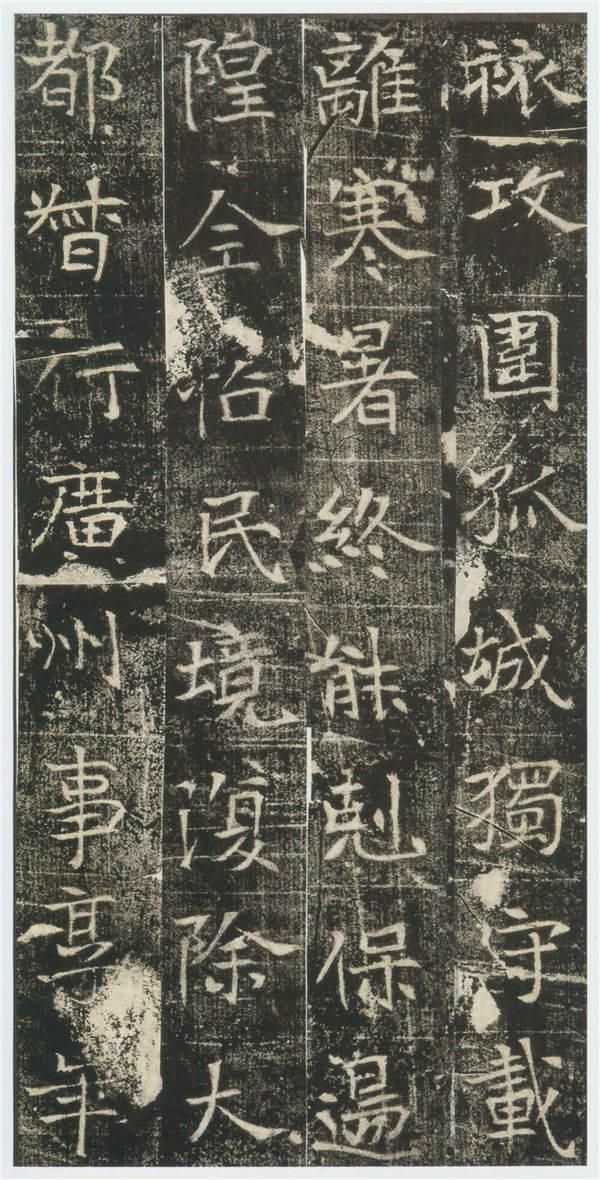 袱攻圍孤城獨守載
離寒暑終能剋保邊
隍全怡民境復除大
都督行廣州事享年